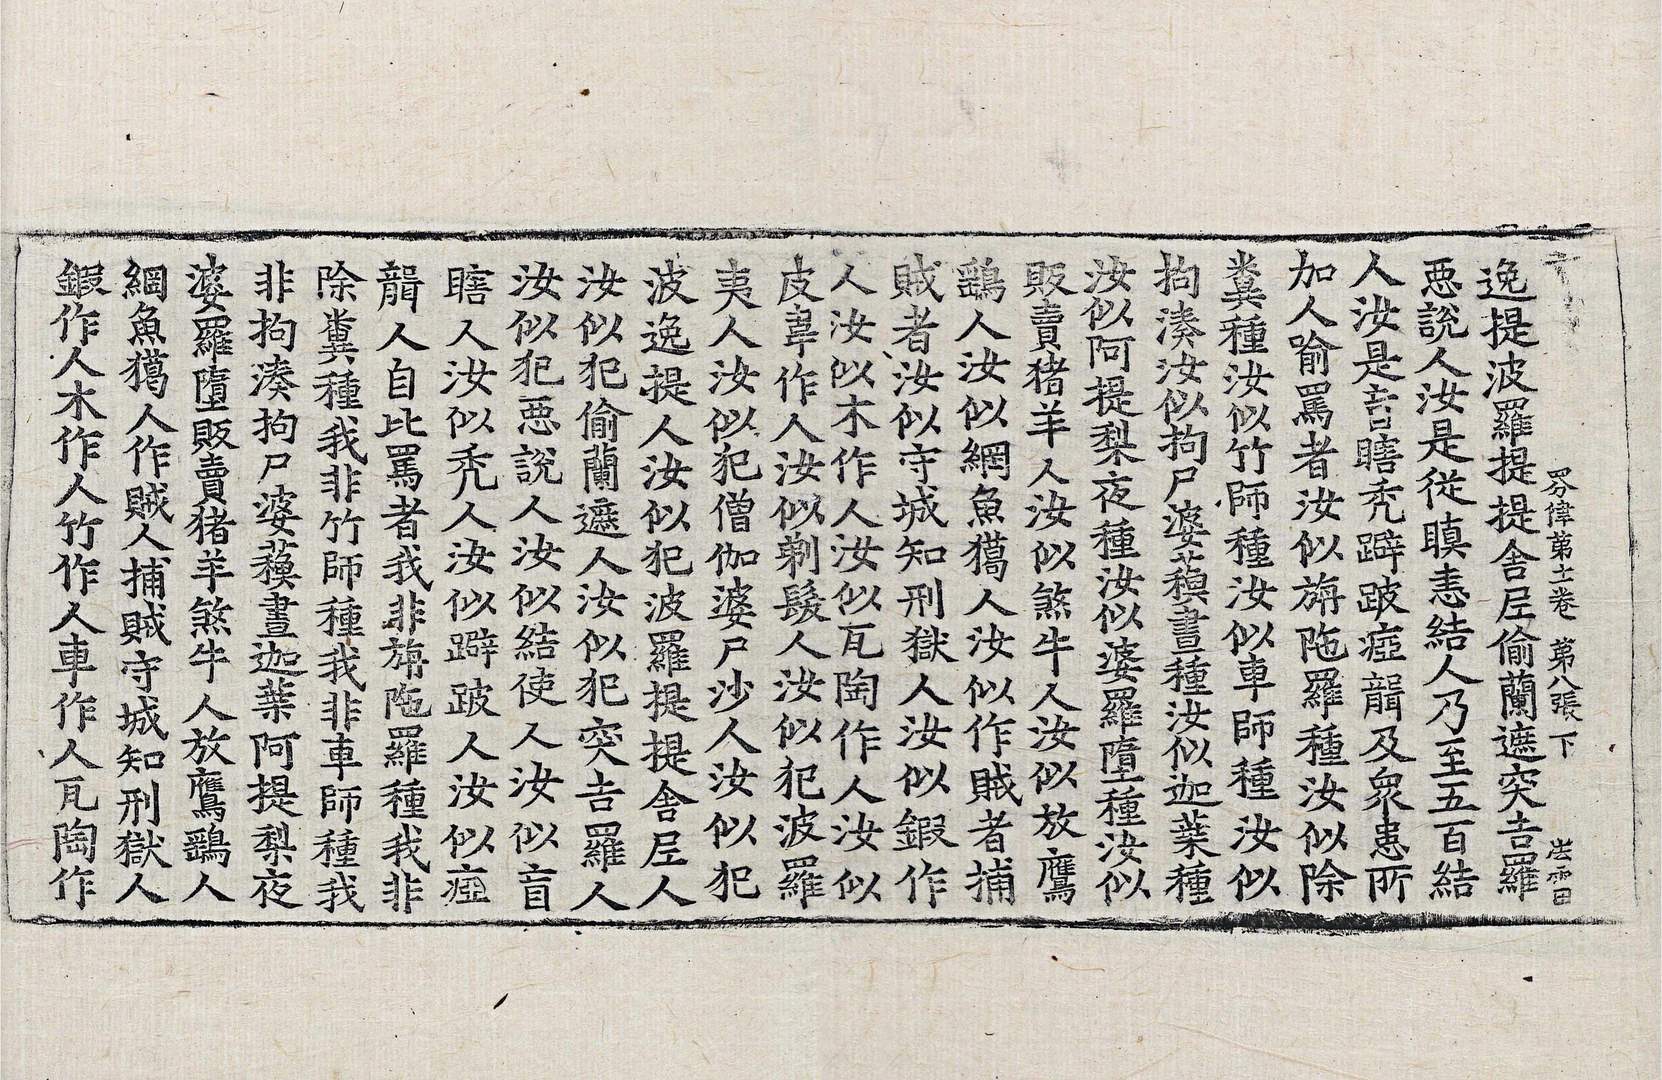 四分律第十一卷 第八張 下
逸提波羅提提舍尼偷蘭遮突吉羅
惡說人汝是從瞋恚結人乃至五百結
人汝是盲瞎禿躃跛瘂聾及眾患所
加人喻罵者汝似旃陁羅種汝似除
糞種汝似竹師種汝似車師種汝似
拘湊汝似拘尸婆蘇晝種汝似迦葉種
汝似阿提梨夜種汝似婆羅墮種汝似
販賣猪羊人汝似煞牛人汝似放鷹
鷂人汝似網魚獦人汝似作賊者捕
賊者汝似守城知刑獄人汝似鍛作
人汝似木作人汝似瓦陶作人汝似
皮韋作人汝似剃髮人汝似犯波羅
夷人汝似犯僧伽婆尸沙人汝似犯
波逸提人汝似犯波羅提提舍尼人
汝似犯偷蘭遮人汝似犯突吉羅人
汝似犯惡說人汝似結使人汝似盲
瞎人汝似禿人汝似躃跛人汝似瘂
聾人自比罵者我非旃陁羅種我非
除糞種我非竹師種我非車師種我
非拘湊拘尸婆蘇晝迦葉阿提梨夜
婆羅墮販賣猪羊煞牛人放鷹鷂人
網魚獦人作賊人捕賊守城知刑獄人
鍛作人木作人竹作人車作人瓦陶作